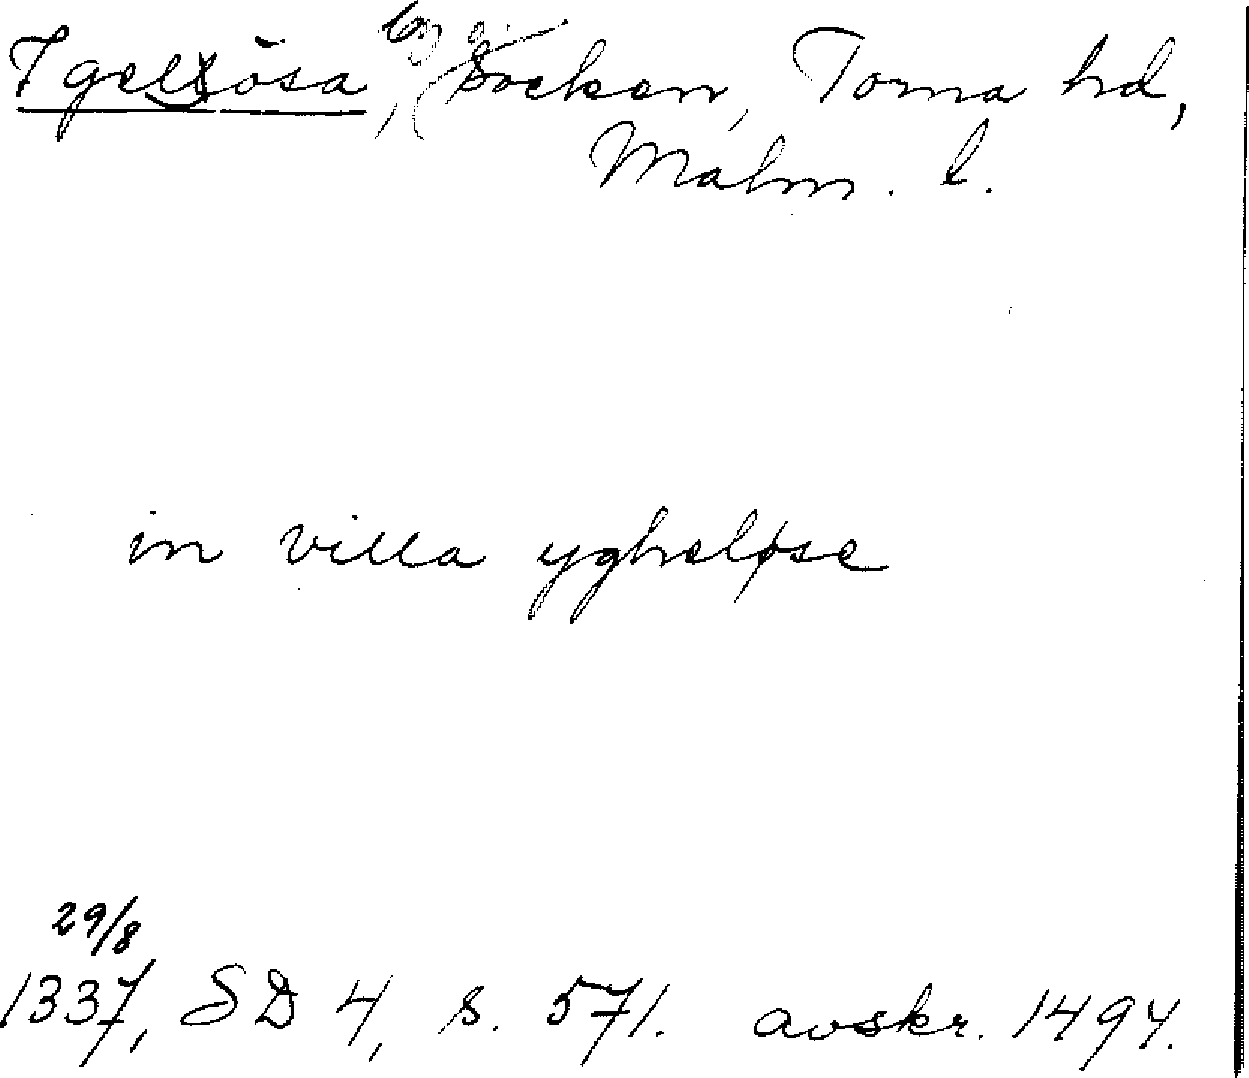 Igelösa, by i socken, Torna hd,
Malm. l.
in villa ygheløse
29/8
1337, SD 4, s. 571. avskr. 1494.